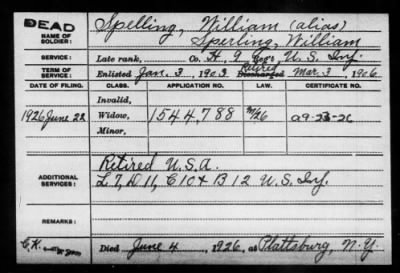 DEAD
NAME OF SOLDIER:
Spelling, William (alias)
Sperling, William
SERVICE:
Late rank, Co. H, 9 Reg't U. S. Inf.
TERM OF SERVICE:
Retired
Enlisted Jan. 3, 1903 Discharged Mar. 3, 1906
DATE OF FILING. CLASS. APPLICATION NO. LAW. CERTIFICATE NO.
Invalid,
1926 June 22 Widow, 1544788
Minor,
ADDITIONAL SERVICES:
Retired U.S.A.
C 10 & B 12 U.S. Inf.
REMARKS:
Died June 4, 1926, at Plattsburg, N.Y.